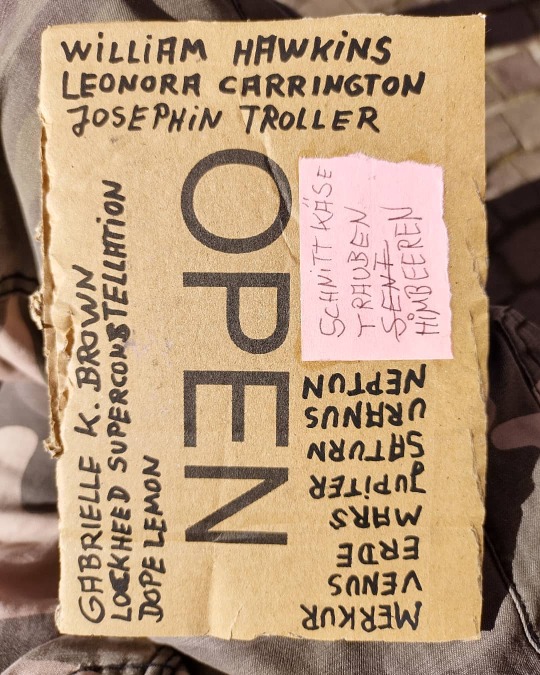 WILLIAM HAWKINS
LEONORA CARRINGTON
JOSEPHIN TROLLER
OPEN
SCHNITTKÄSE
TRAUBEN
SENF
HIMBEEREN
GABRIELLE K. BROWN
LOCKHEED SUPERCONSTELLATION
DOPE LEMON
MERKUR
VENUS
ERDE
MARS
JUPITER
SATURN
URANUS
NEPTUN